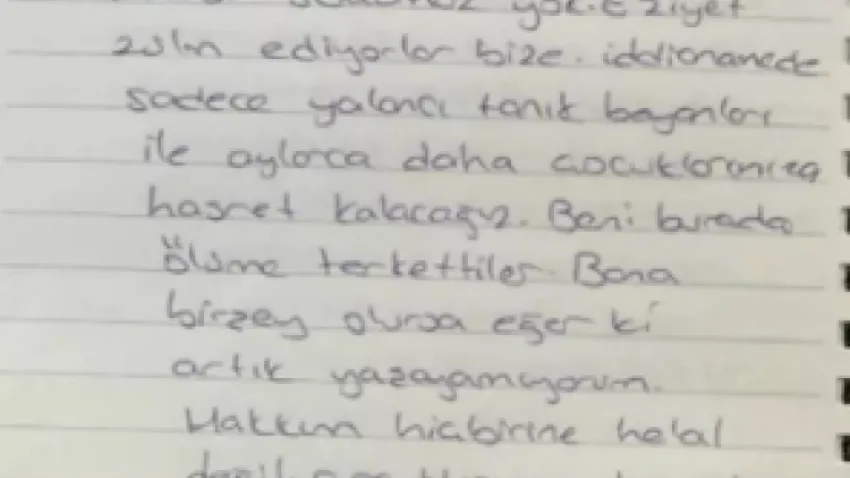 yok. Eziyet
zulm ediyorlar bize. iddianamede
sadece yalancı tanık beyanları
ile aylarca daha çocuklarımıza
hasret kalacağız. Beni burada
ölüme terkettiler. Bana
birşey olursa eğer ki
artık yazayamıyorum.
Hakkım hiçbirine helal
değil